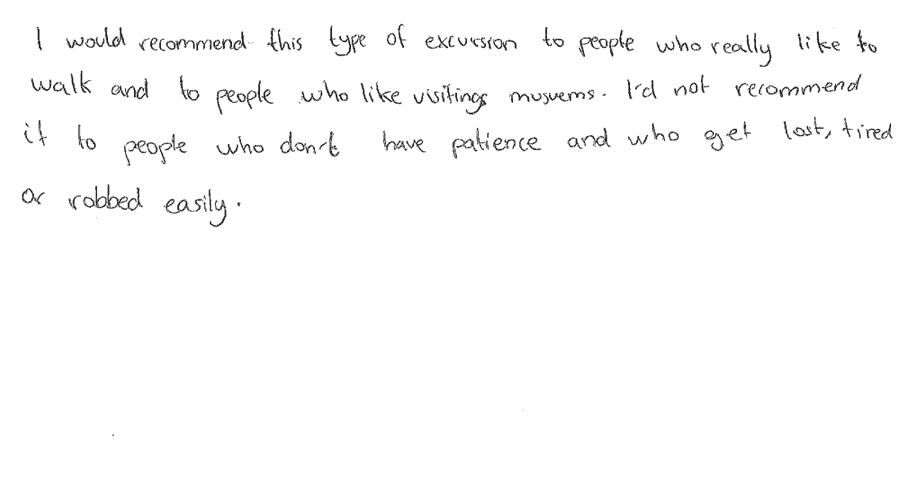 I would recommend this type of excursion to people who really like to
walk and to people who like visitings musuems. I'd not recommend
it to people who don't have patience and who get lost, tired
or robbed easily.